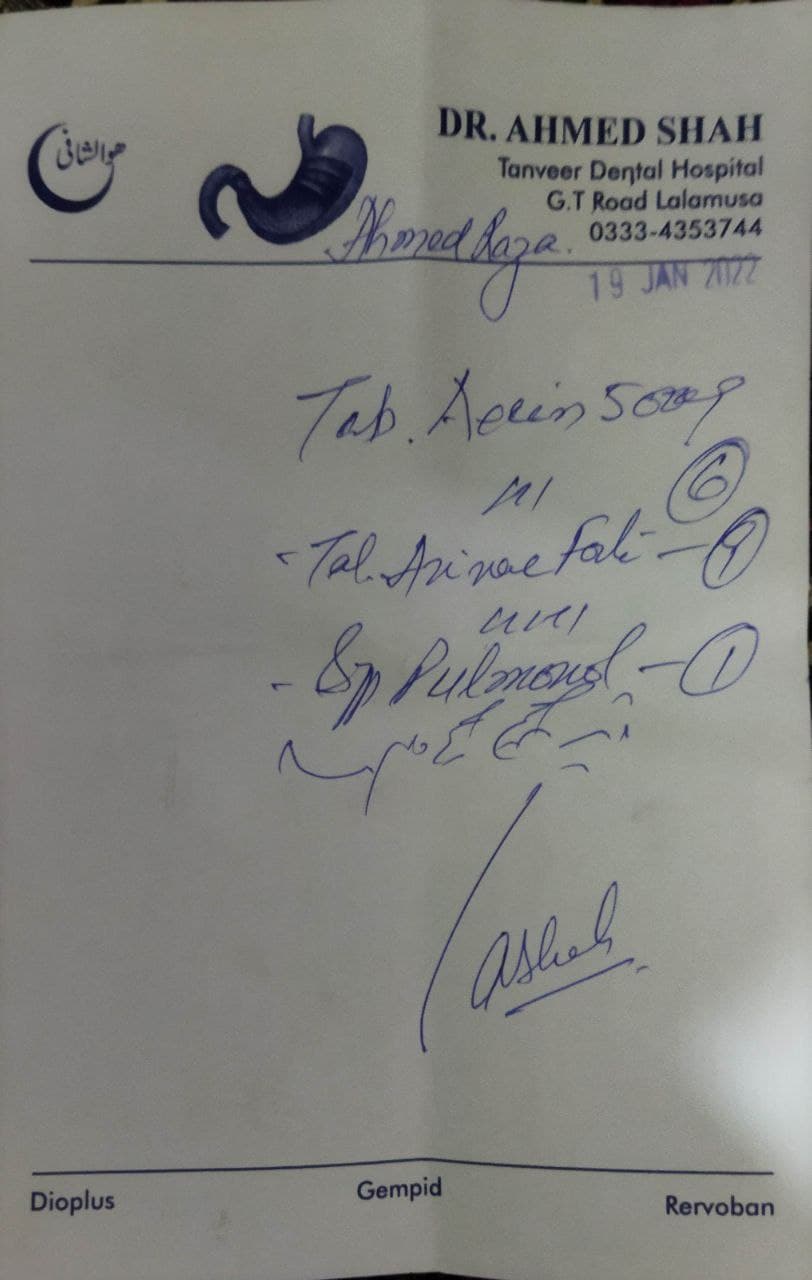 هوالشافی
DR. AHMED SHAH
Tanveer Dental Hospital
G.T Road Lalamusa
0333-4353744
Ahmed Raza.
19 JAN 2022
Tab. 500mg
6
- Tab. Arinac Fort - 9
- Syp Pulmonol - 1
AShah
Dioplus Gempid Rervoban